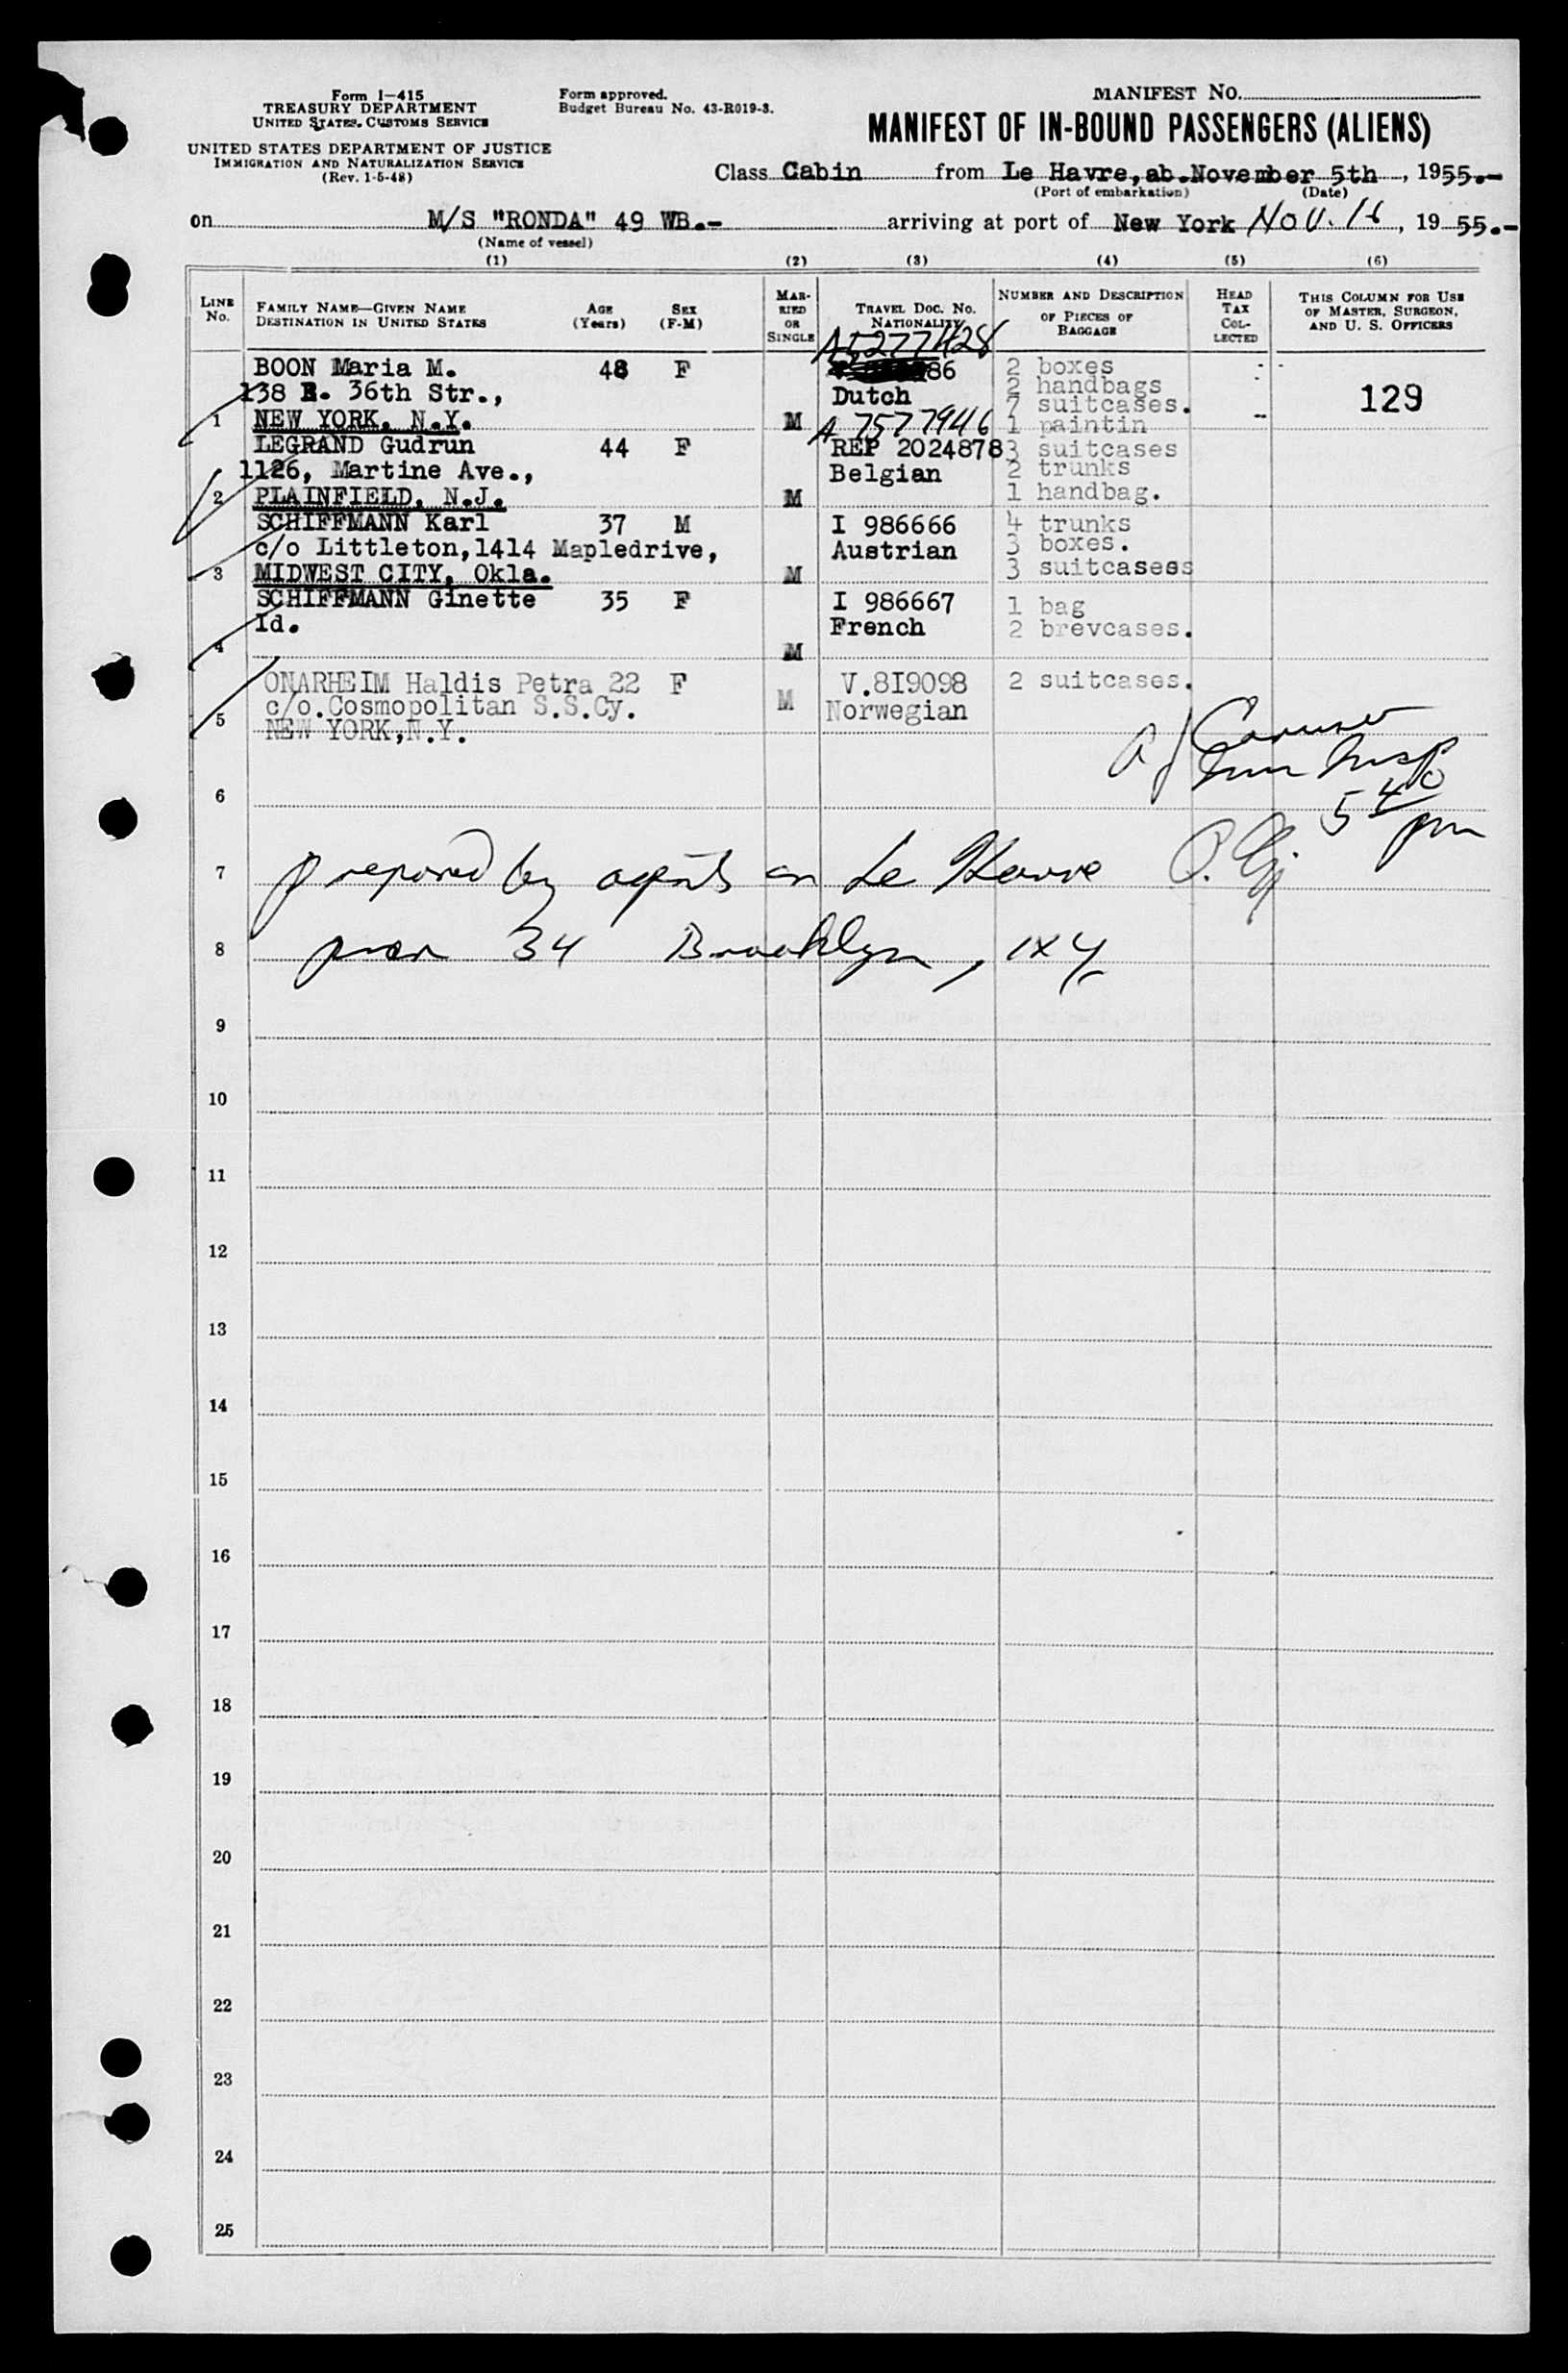 Form I-415
TREASURY DEPARTMENT
UNITED STATES CUSTOMS SERVICE
UNITED STATES DEPARTMENT OF JUSTICE
IMMIGRATION AND NATURALIZATION SERVICE
(Rev. 1-5-48)
Form approved.
Budget Bureau No. 43-R019-3.
MANIFEST NO.
MANIFEST OF IN-BOUND PASSENGERS (ALIENS)
Class Cabin from Le Havre, ab. November 5th, 1955.-
(Port of embarkation) (Date)
on M/S "RONDA" 49 WB.- arriving at port of New York Nov. 16, 1955.-
(Name of vessel)
(1) (2) (3) (4) (5) (6)
LINE NO. FAMILY NAME—GIVEN NAME DESTINATION IN UNITED STATES AGE (Years) SEX (F-M) MARRIED OR SINGLE TRAVEL DOC. NO. NATIONALITY NUMBER AND DESCRIPTION OF PIECES OF BAGGAGE HEAD TAX COLLECTED THIS COLUMN FOR USE OF MASTER, SURGEON, AND U. S. OFFICERS
A 5277428
BOON Maria M. 48 F 86 2 boxes
138 E. 36th Str., Dutch 2 handbags 129
7 suitcases.
1 NEW YORK, N.Y. M A 7577946 1 paintin
LEGRAND Gudrun 44 F REP 2024878 3 suitcases
1126, Martine Ave., Belgian 2 trunks
2 PLAINFIELD, N.J. M 1 handbag.
SCHIFFMANN Karl 37 M I 986666 4 trunks
c/o Littleton, 1414 Mapledrive, Austrian 3 boxes.
3 MIDWEST CITY, Okla. M 3 suitcasess
SCHIFFMANN Ginette 35 F I 986667 1 bag
Id. French 2 brevcases.
4 M
ONARHEIM Haldis Petra 22 F V.819098 2 suitcases.
c/o. Cosmopolitan S.S.Cy. M Norwegian
5 NEW YORK, N.Y.
Imm Insp
6 5 40 pm
7 prepared by agents in Le Havre
8 pier 34 Brooklyn, NY
9
10
11
12
13
14
15
16
17
18
19
20
21
22
23
24
25